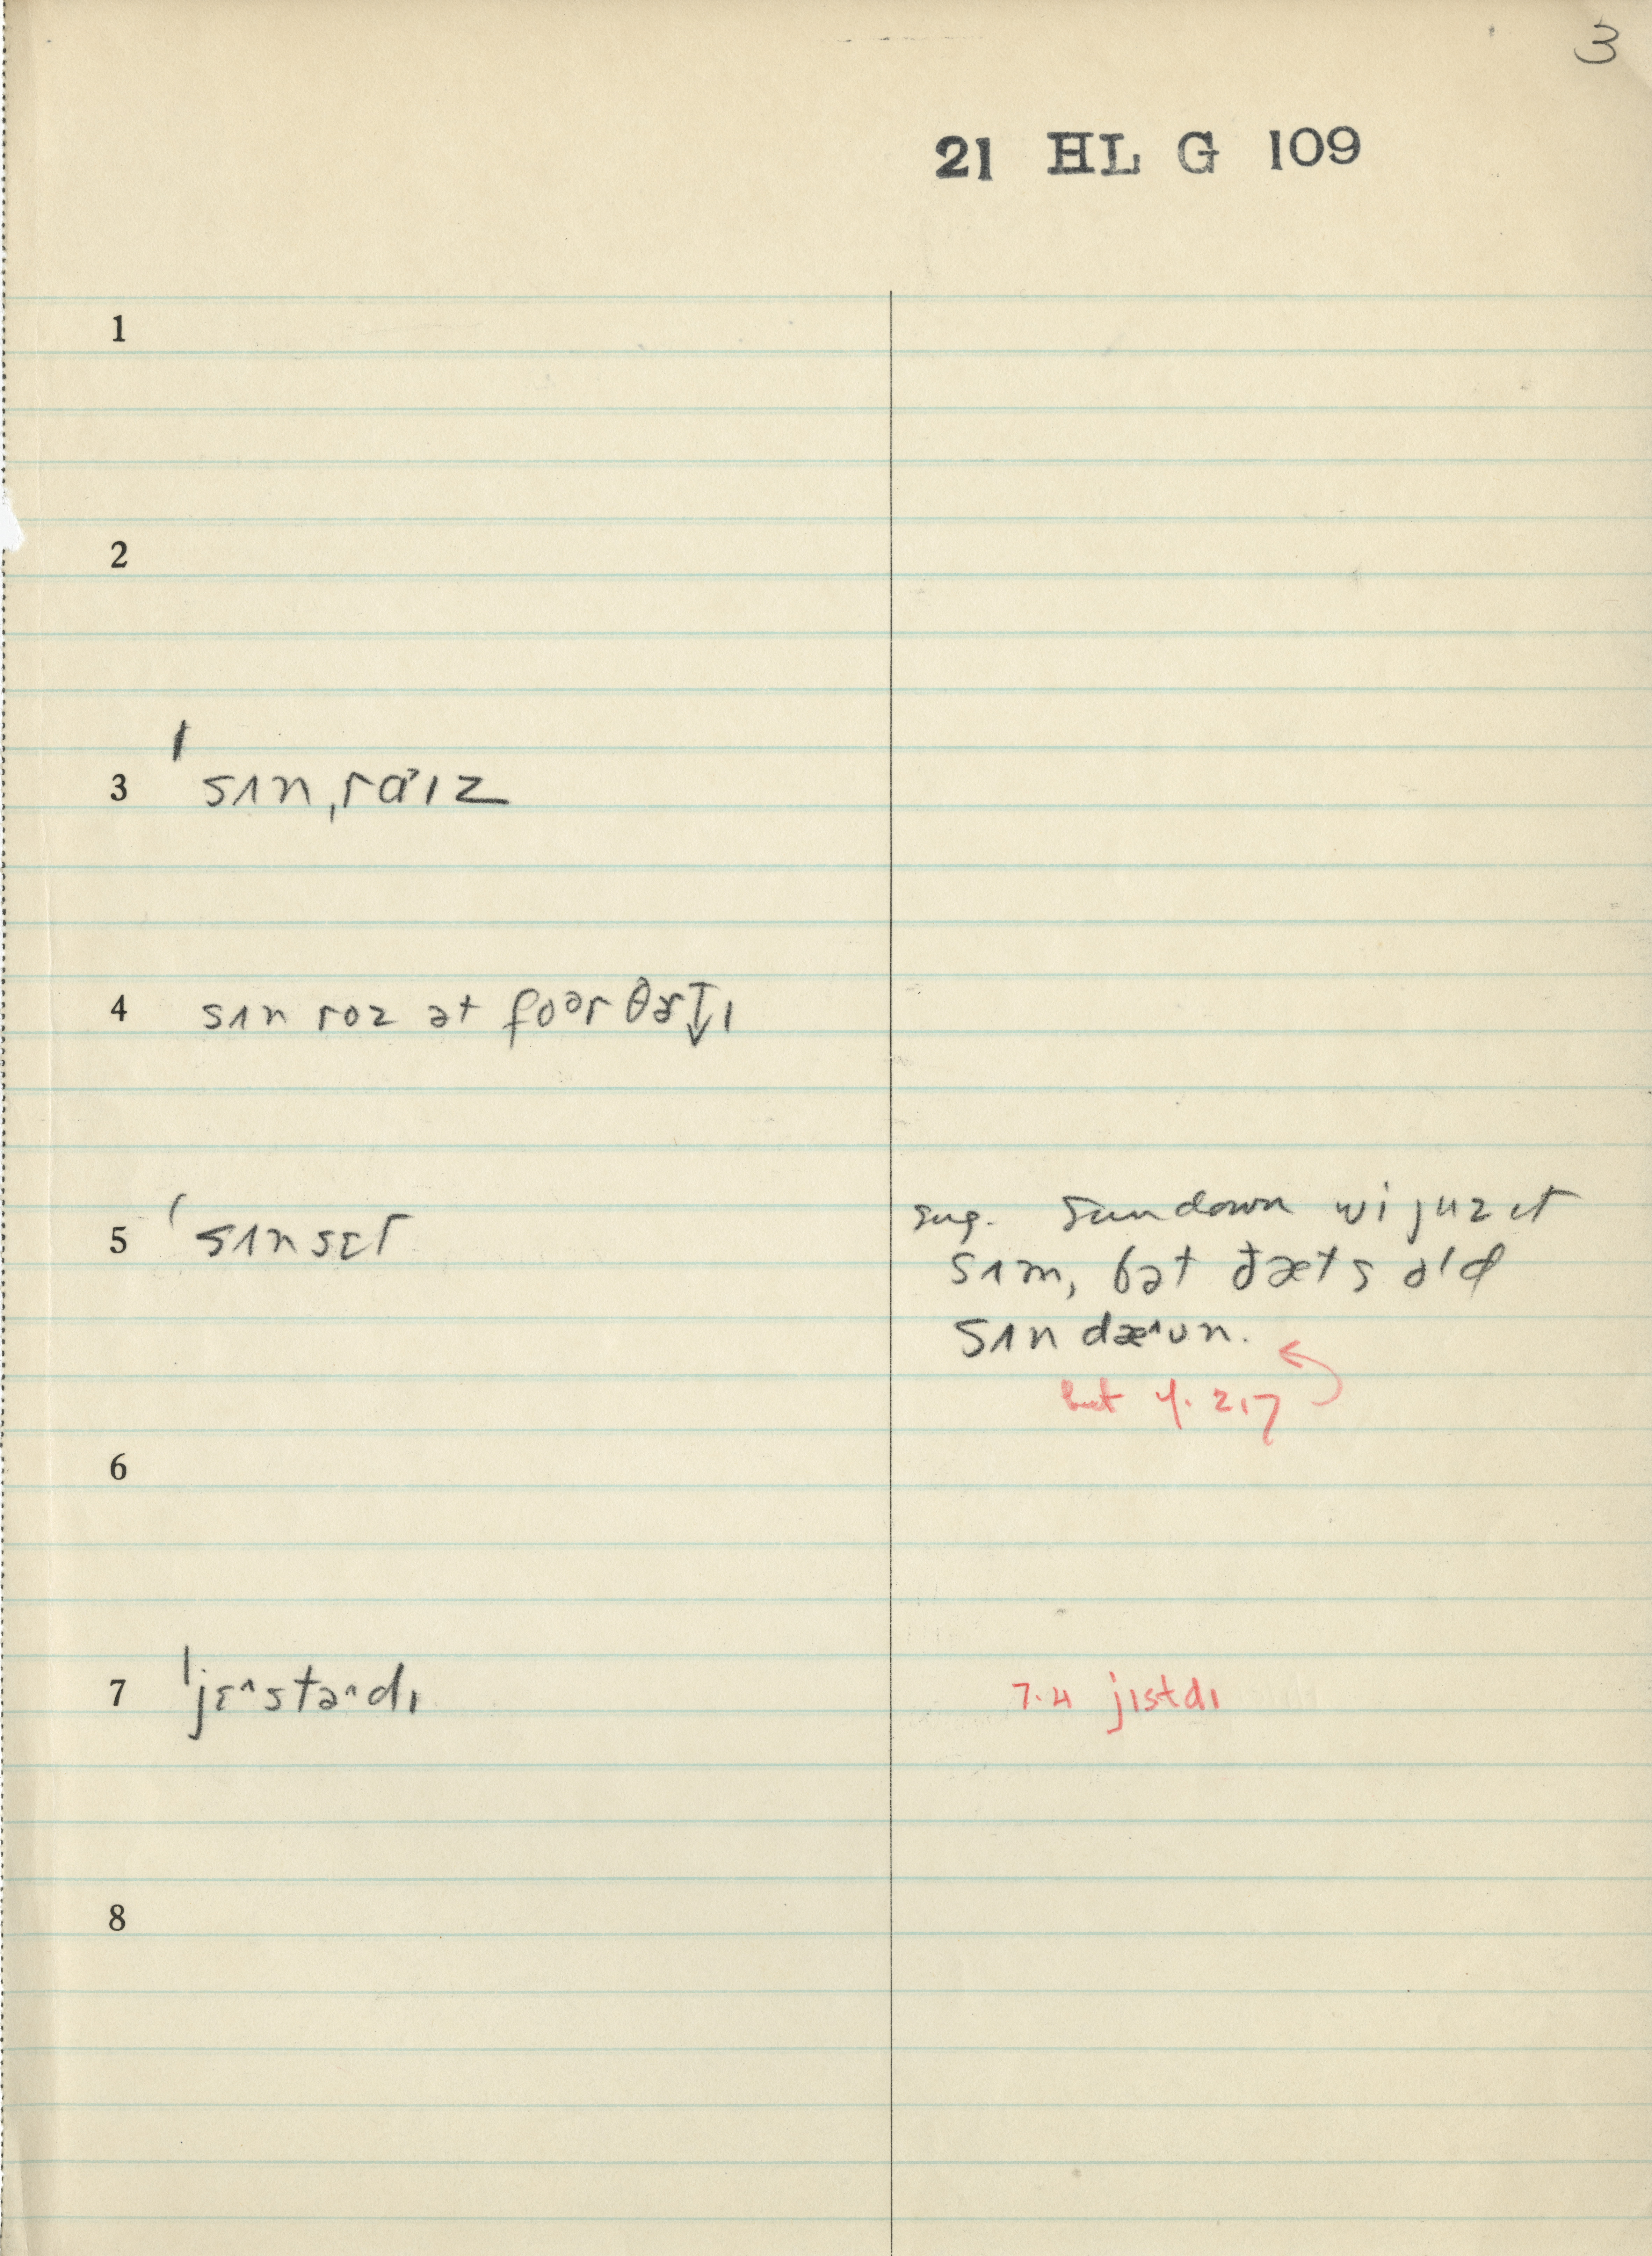 3
21 HL G 109
1
2
3 ˈsʌnˌrɑˈɪz
4 sʌn roz ət foər θɚt̬ɪ
5 ˈsʌnsɛt
sug. Sundown wi juz ɪt
sʌm, bət ðæts old
sʌndæ^ʊn.
but 4. 2,7
6
7 ˈjɛ^stə^dɪ
7.4 jɪstdɪ
8